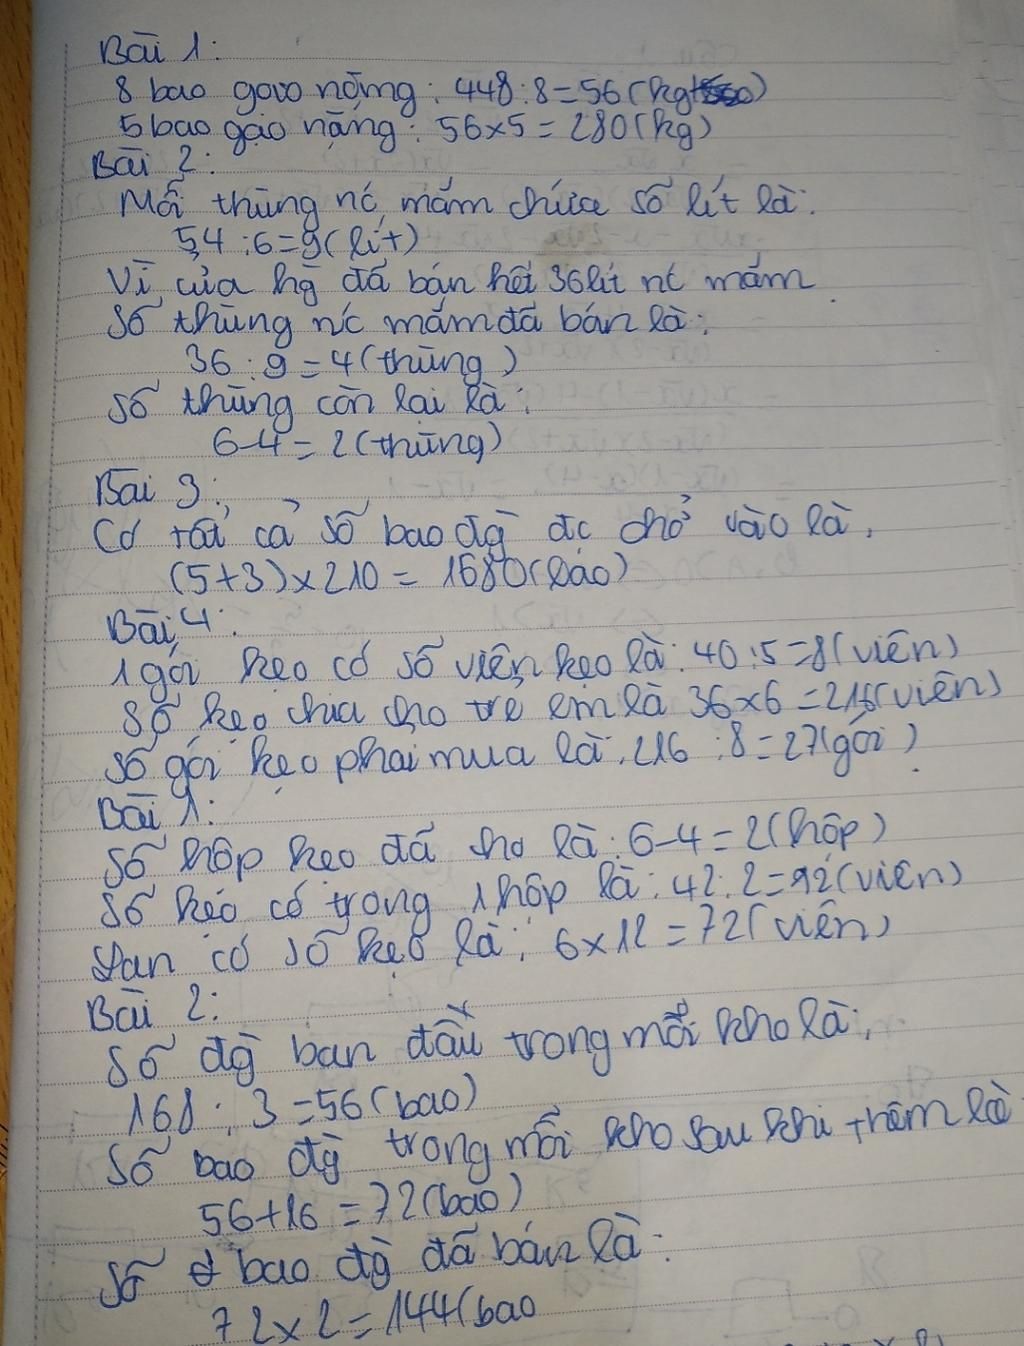 Bài 1:
8 bao gạo nặng: 448:8=56(kg)
5 bao gạo nặng: 56x5=280(kg)
Bài 2:
Mỗi thùng nć mắm chứa số lít là:
54:6=9(lít)
Vì cửa hg̀ đã bán hết 36 lít nć mắm
Số thùng nć mắm đã bán là:
36:9=4(thùng)
Số thùng còn lại là:
6-4=2(thùng)
Bài 3:
Có tất cả số bao đg̀ đc chở vào là,
(5+3)x210=1680(bao)
Bài 4:
1 gói kẹo có số viên kẹo là: 40:5=8(viên)
Số kẹo chia cho trẻ em là 36x6=216(viên)
Số gói kẹo phải mua là: 216:8=27(gói)
Bài 1:
Số hộp kẹo đã cho là: 6-4=2(hộp)
Số kẹo có trong 1 hộp là: 42:2=92(viên)
có số kẹo là: 6x12=72(viên)
Bài 2:
Số đg̀ ban đầu trong mỗi kho là:
168:3=56(bao)
Số bao đg̀ trong mỗi kho sau khi thêm là
56+16=72(bao)
Số bao đg̀ đã bán là:
72x2=144(bao